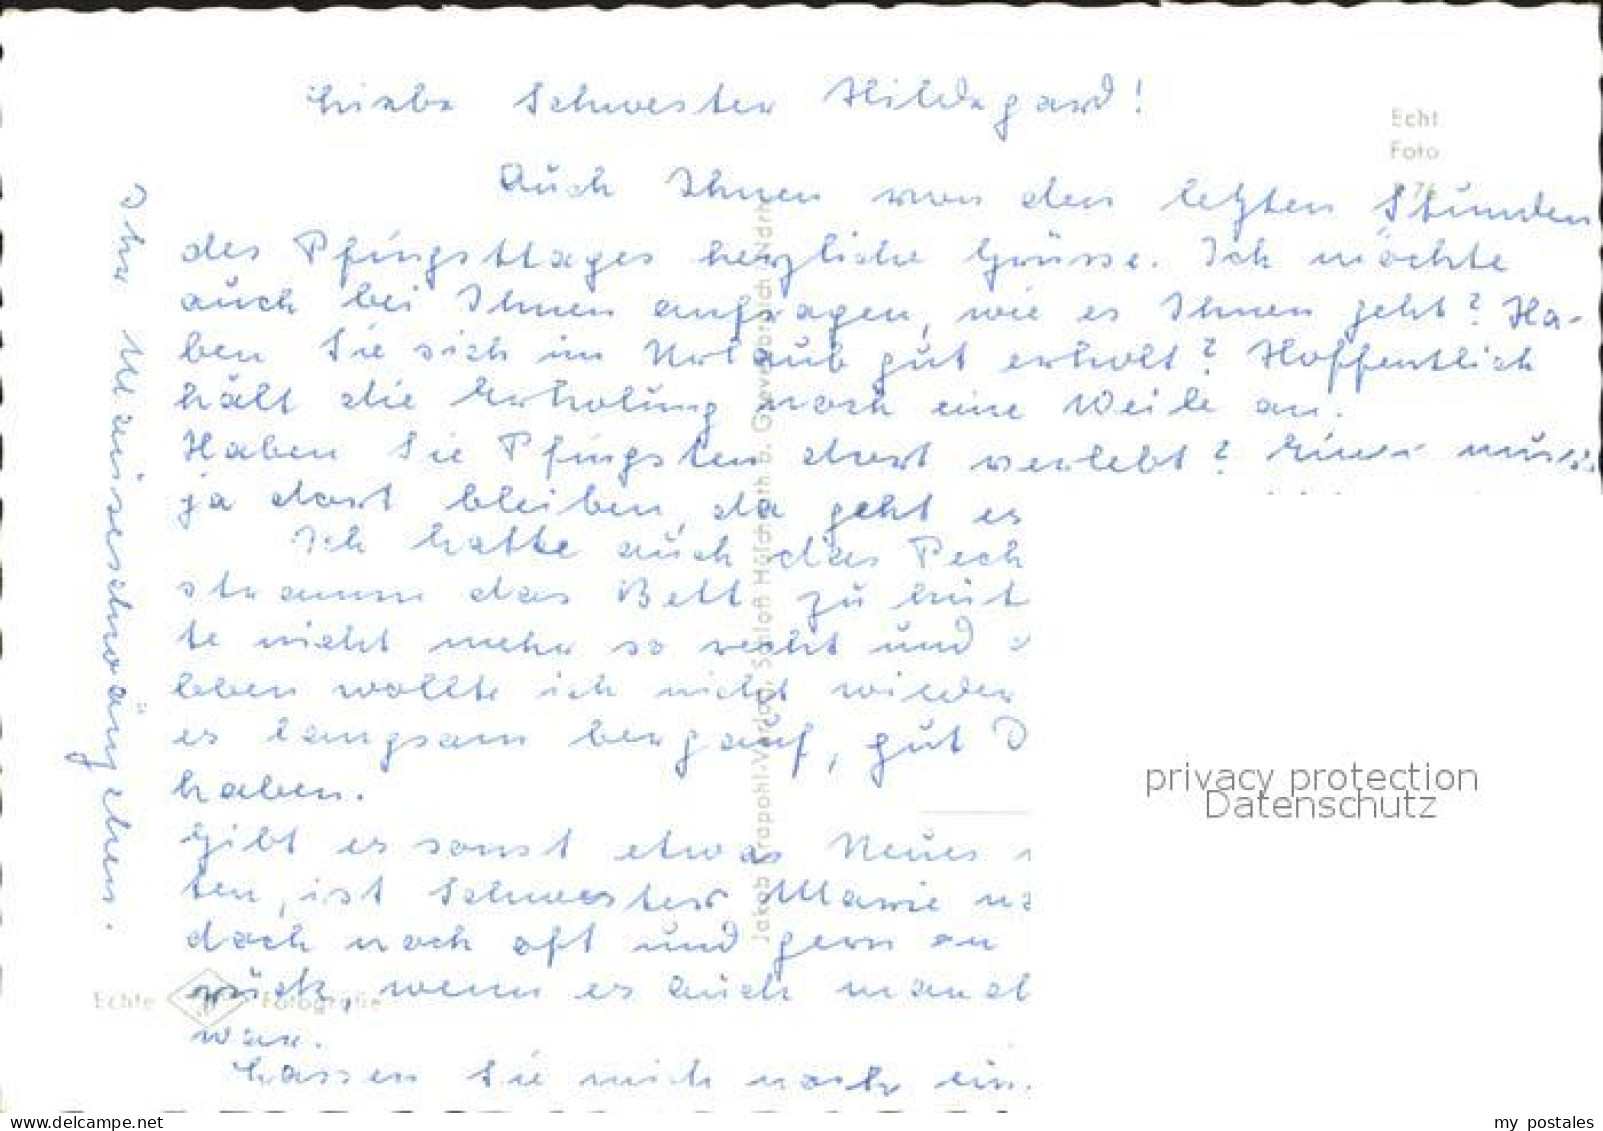 Liebe Schwester Hildegard!
Echt
Foto
Auch Ihnen von den letzten Stunden
des Pfingsttages herzliche Grüsse. Ich möchte
auch bei Ihnen anfragen, wie es Ihnen geht? Ha-
ben Sie sich im Urlaub gut erholt? Hoffentlich
hält die Erholung noch eine Weile an.
Haben Sie Pfingsten dort verlebt? Einer muss
ja dort bleiben, da geht es
Ich hatte auch das Pech
stramm das Bett zu hüt
te nicht mehr so recht und
leben wollte ich nicht wieder
es langsam bergauf, gut D
haben.
Gibt es sonst etwas Neues
ten, ist Schwester Marie no
doch noch oft und gern an
rück, wenn es auch manch
war.
Lassen Sie mich noch ein.
Ihr Mauseschwänzchen.
Jakob Krapohl-Verlag, Schloß Hülchrath b. Grevenbroich/Ndrh.
Echte Fotografie
privacy protection
Datenschutz
www.delcampe.net
my_postales